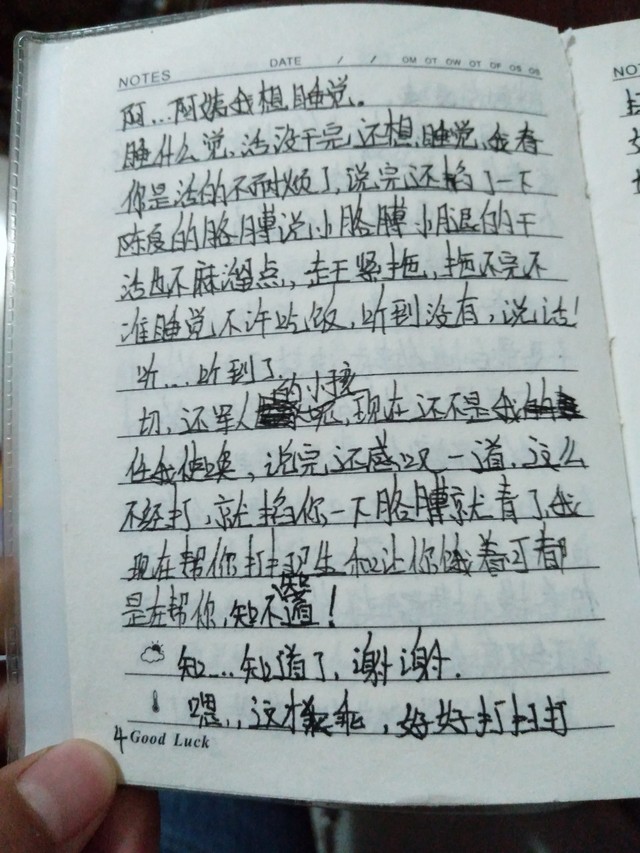 NOTES DATE / / OM OT OW OT OF OS OS
阿…阿姨我想睡觉。
睡什么觉、活没干完还想睡觉、我看
你是活的不耐烦了，说完还掐了一下
陈夏的胳膊说小胳膊小腿的干
活也不麻溜点，赶紧拖，拖不完不
准睡觉不许吃饭，听到没有，说话！
听…听到了。
切，还军人的小孩，现在还不是我
任我使唤，说完还感叹一道，这么
不经打，就掐你一下胳膊就青了，我
现在帮你打扫卫生和让你饿着可都
是在帮你，知不知道！
知….知道了，谢谢.
嗯，，这才乖，好好打扫打
4 Good Luck
NOT